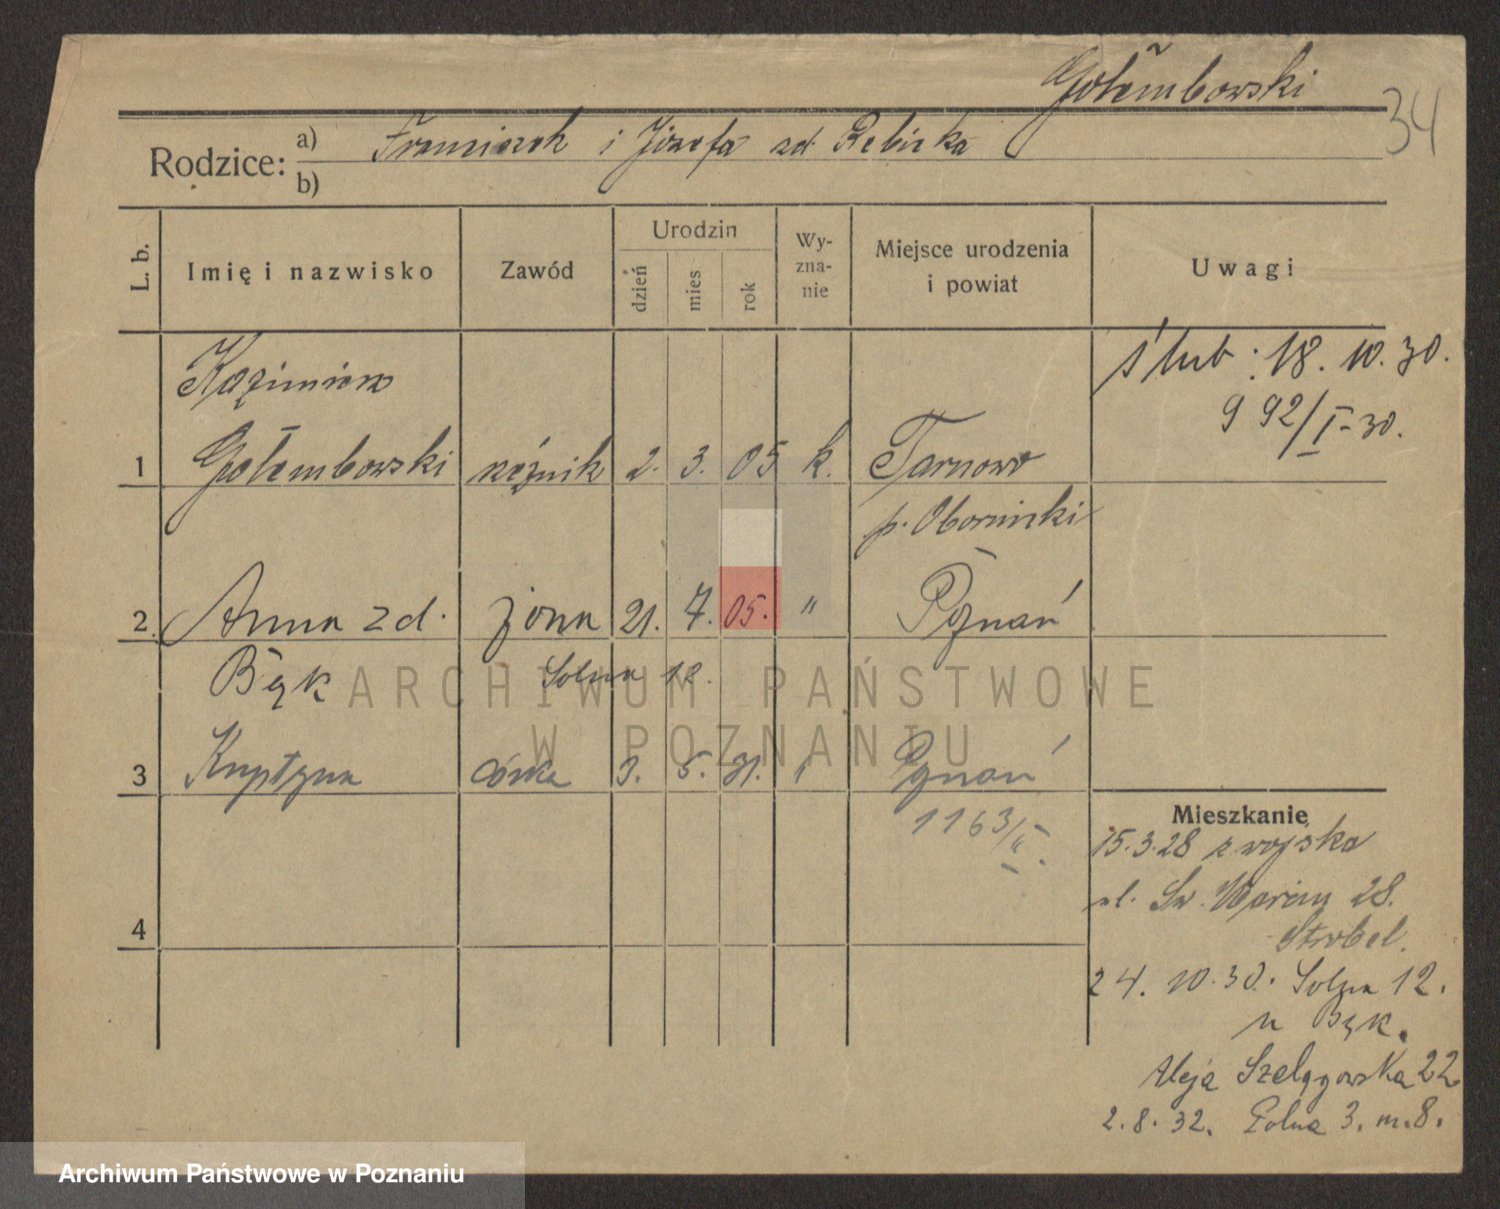 Gołembowski
34
Rodzice: a) Franciszek i Józefa zd. Rebizka
b)
L. b. Imię i nazwisko Zawód Urodzin dzień mies rok Wy-zna-nie Miejsce urodzenia i powiat Uwagi
Kazimierz ślub: 18. 10. 30.
992/I-30.
1 Gołembowski rzeźnik 2. 3. 05 k. Tarnowo
p. Obornicki
2 Anna zd. żona 21. 7. 05. " Poznań
Bąk Solna 12.
ARCHIWUM PAŃSTWOWE
W POZNANIU
3 Krystyna córka 3. 5. 31. Poznań
1163/II.
Mieszkanie
15.3.28 z wojska
ul. Św. Marcin 28.
Strobel.
4
24. 10. 30. Solna 12.
u Bąk.
Aleja Szelągowska 22
2. 8. 32. Polna 3. m. 8.
Archiwum Państwowe w Poznaniu